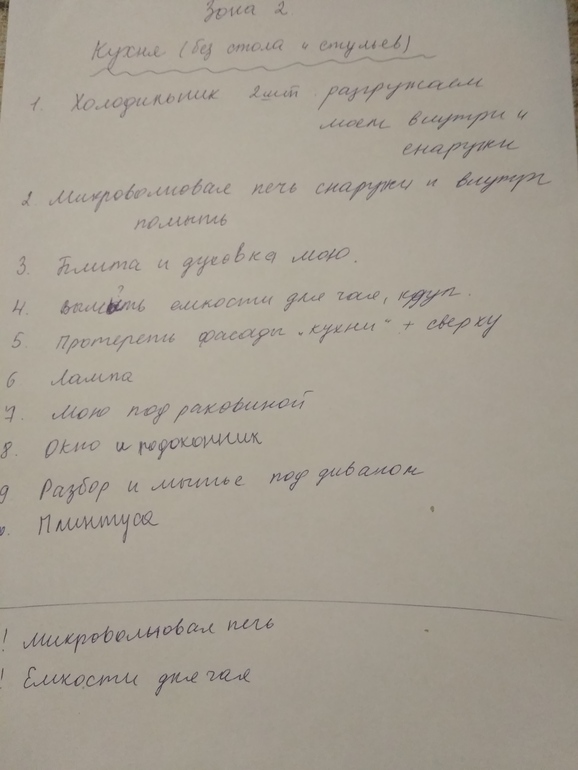 Зона 2.
Кухня (без стола и стульев)
1. Холодильник 2шт. разгружаем
моем внутри и
снаружи
2 Микроволновая печь снаружи и внутри
помыть
3. Плита и духовка мою.
4. вымыть емкости для чая, круп.
5. Протереть фасады "кухни" + сверху
6 Лампа
7. Мою под раковиной
8. Окно и подоконник
9 Разбор и мытье под диваном
0. Плинтуса
! Микроволновая печь
! Емкости для чая